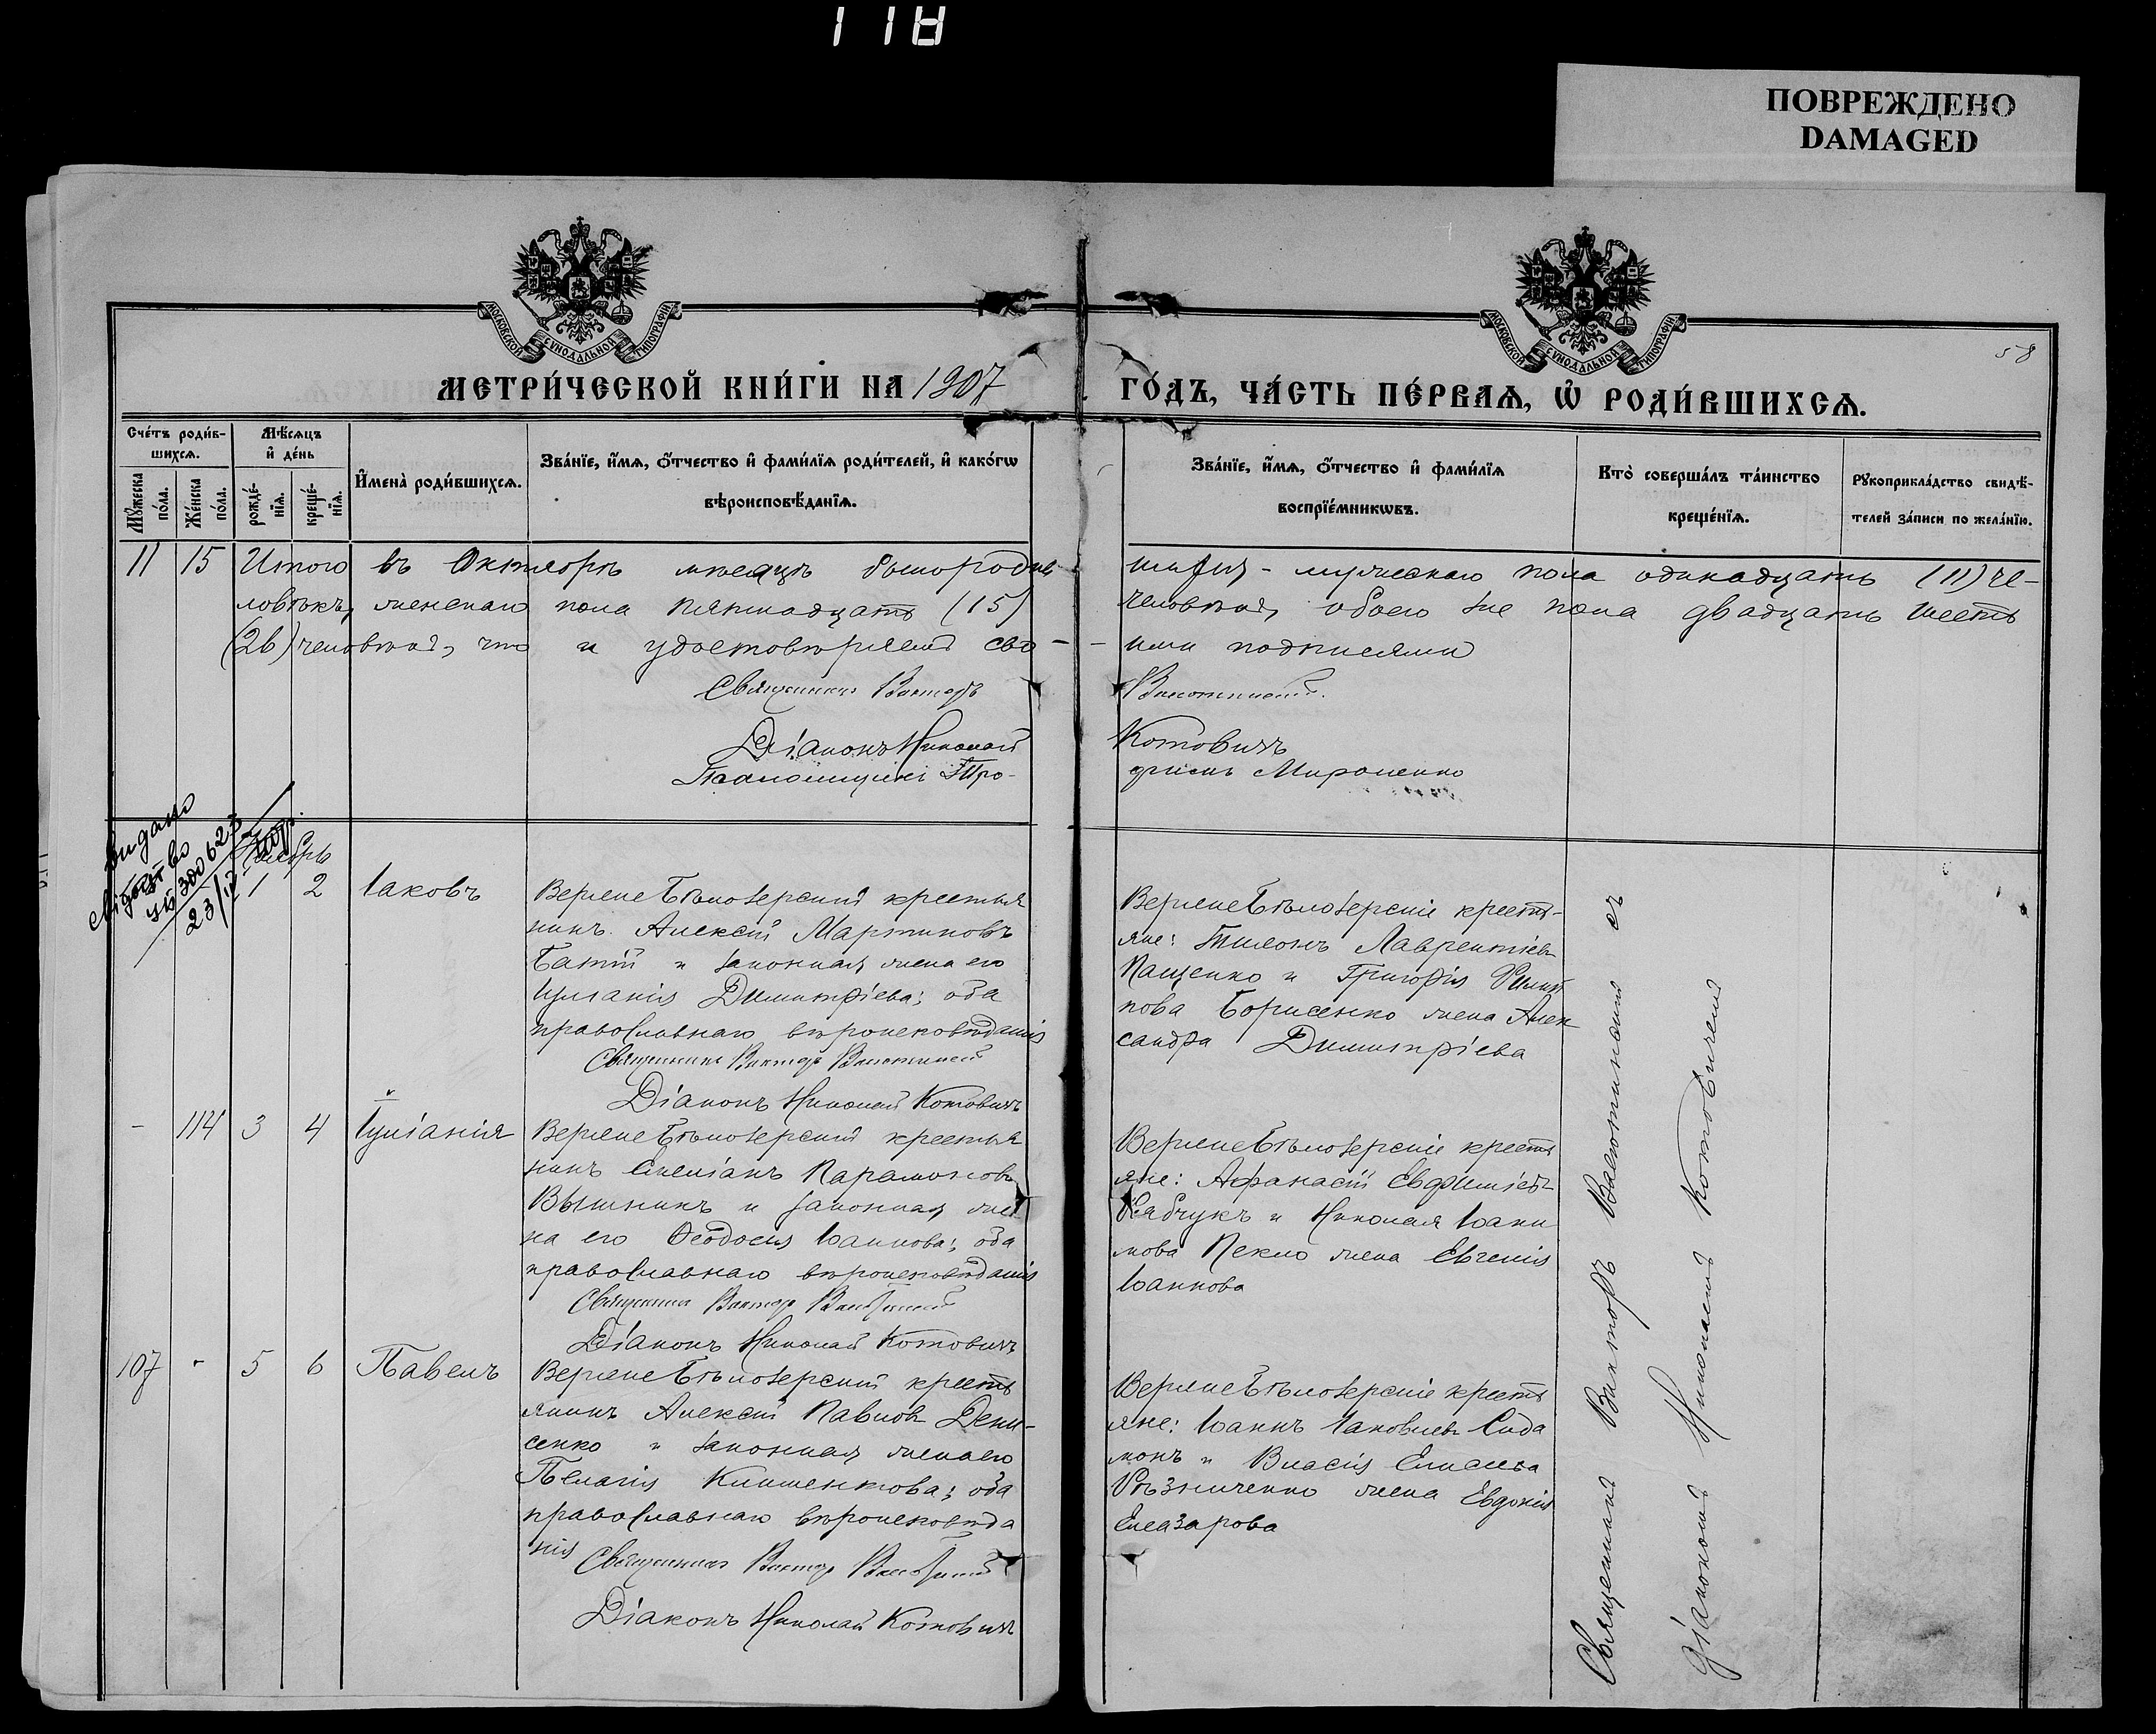 118
ПОВРЕЖДЕНО
DAMAGED
МОСКОВСКОЙ СѴНОДАЛЬНОЙ ТИПОГРАФІИ
МОСКОВСКОЙ СѴНОДАЛЬНОЙ ТИПОГРАФІИ
58
МЕТРИ́ЧЕСКОЙ КНИ́ГИ НА 1907
ГО́ДЪ, ЧА́СТЬ ПЕ́РВАѦ, Ѡ҆ РОДИ́ВШИХСѦ.
Сче́тъ роди́вшихсѧ.
Мꙋ́жеска по́ла.
Же́нска по́ла.
Мѣ́сѧцъ и҆ де́нь
рожде́нїѧ.
креще́нїѧ.
И҆мена̀ роди́вшихсѧ.
Зва́нїе, и҆́мѧ, ѻ҆́тчество и҆ фами́лїѧ роди́телей, и҆ како́гѡ
вѣроисповѣ́данїѧ.
Зва́нїе, и҆́мѧ, ѻ҆́тчество и҆ фами́лїѧ
воспрїе́мникѡвъ.
Кто̀ соверша́лъ та́инство
креще́нїѧ.
Рꙋкоприкла́дство свидѣ́-
телей за́писи по жела́нїю.
11 15 Итого въ Октябрѣ мѣсяцѣ было родив
шихся - мужескаго пола одинадцать (11) че-
ловѣкъ, женскаго пола пятнадцать (15)
человѣкъ, обоего же пола двадцать шесть
(26) человѣкъ, что и удостовѣряемъ сво-
- ими подписями
Священникъ Викторъ
Діаконъ Николай
Котовичъ
Псаломщикъ Тро-
фимъ Мироненко
видано
свідоцтво
300623
23/
Ноябрь
1 2 Іаковъ
Верхне Бѣлозерскій крестья
нинъ Алексій Мартиновъ
Батій и законная жена его
Іуліанія Димитріева; оба
православнаго вѣроисповѣданія
Священникъ Викторъ
Діаконъ Николай Котовичъ
Верхне Бѣлозерскіе крестья-
яне: Тихонъ Лаврентіевъ
Пащенко и Григорія Филип
пова Борисенко жена Алек
сандра Димитріева
- 114 3 4 Іуліанія
Верхне Бѣлозерскій крестья
нинъ Емеліанъ Парамоновъ
Вышникъ и законная же
на его Ѳеодосія Іоаннова; оба
православнаго вѣроисповѣданія
Священникъ Викторъ
Діаконъ Николай Котовичъ
Верхне Бѣлозерскіе кресть
яне: Афанасій Евфиміевъ
Рабчукъ и Николая Іоан
нова Пекло жена Евгенія
Іоаннова
107 - 5 6 Павелъ
Верхне Бѣлозерскій кресть
янинъ Алексій Павловъ Дени-
сенко и законная жена его
Пелагія Климентова; оба
православнаго вѣроисповѣда
нія
Священникъ Викторъ
Діаконъ Николай Котовичъ
Верхне Бѣлозерскіе кресть
яне: Іоаннъ Іаковлевъ Сида
монъ и Власія Елисеева
Рѣзниченко жена Евдокія
Елеазарова
Священникъ Викторъ съ
Діакономъ Николаемъ Котовичемъ